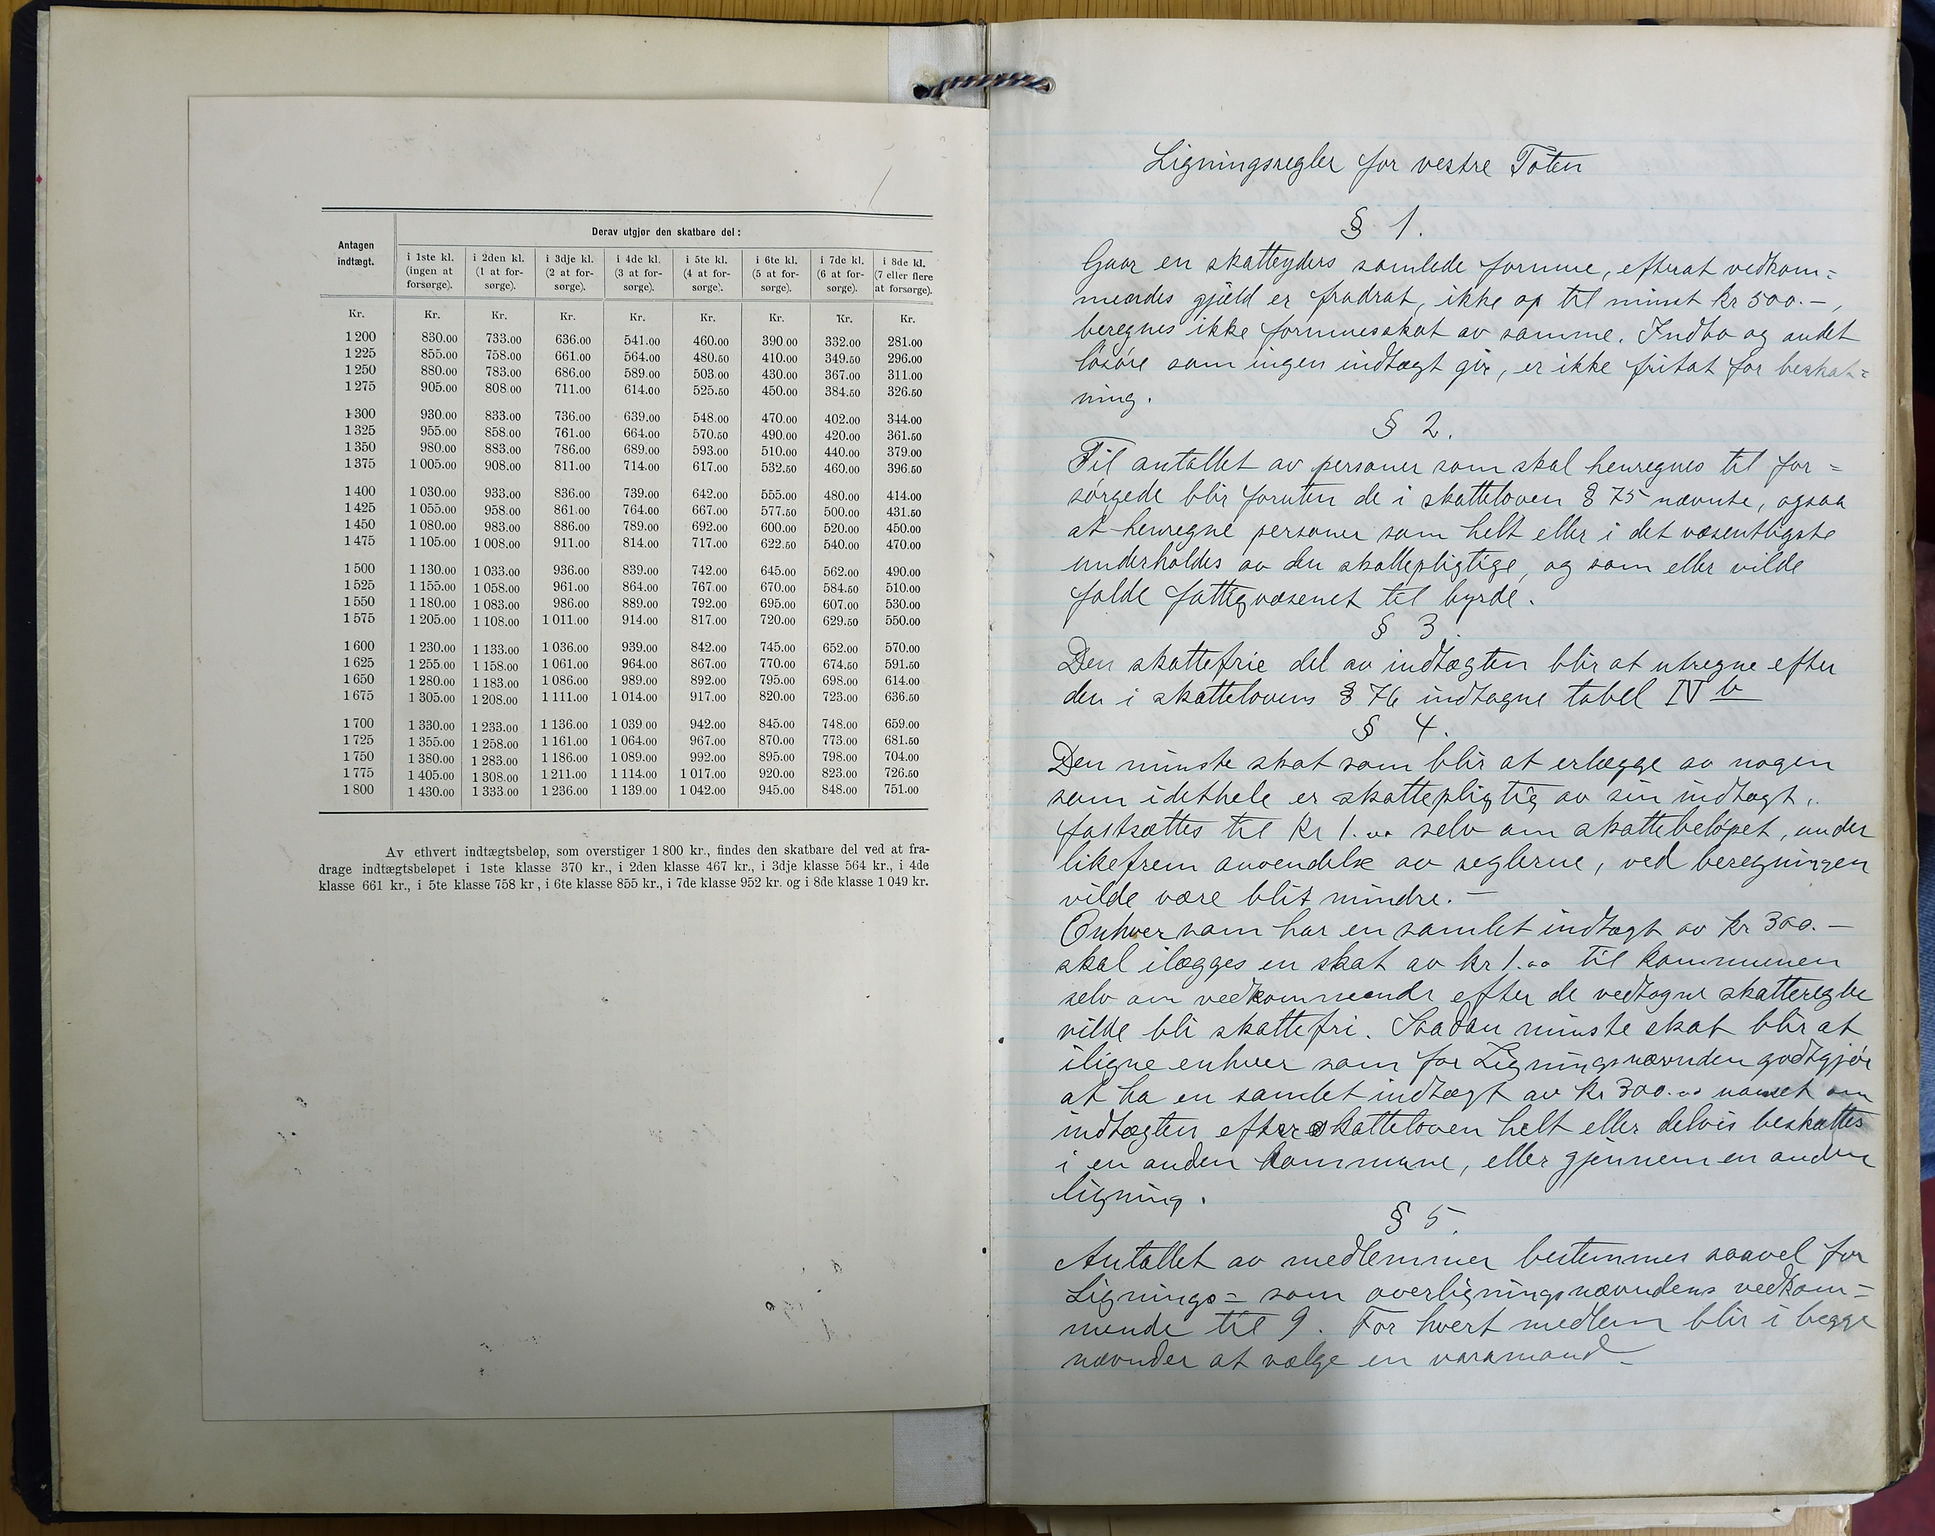 Antagen
indtægt.
Derav utgjør den skatbare del :
i 1ste kl. (ingen at forsørge).
i 2den kl. (1 at for- sørge).
i 3dje kl. (2 at for- sørge).
i 4de kl. (3 at for- sørge).
i 5te kl. (4 at for- sørge).
i 6te kl. (5 at for- sørge).
i 7de kl. (6 at for- sørge).
i 8de kl. (7 eller flere at forsørge).
Kr. Kr. Kr. Kr. Kr. Kr. Kr. Kr. Kr.
1 200 830.00 733.00 636.00 541.00 460.00 390.00 332.00 281.00
1 225 855.00 758.00 661.00 564.00 480.50 410.00 349.50 296.00
1 250 880.00 783.00 686.00 589.00 503.00 430.00 367.00 311.00
1 275 905.00 808.00 711.00 614.00 525.50 450.00 384.50 326.50
1 300 930.00 833.00 736.00 639.00 548.00 470.00 402.00 344.00
1 325 955.00 858.00 761.00 664.00 570.50 490.00 420.00 361.50
1 350 980.00 883.00 786.00 689.00 593.00 510.00 440.00 379.00
1 375 1 005.00 908.00 811.00 714.00 617.00 532.50 460.00 396.50
1 400 1 030.00 933.00 836.00 739.00 642.00 555.00 480.00 414.00
1 425 1 055.00 958.00 861.00 764.00 667.00 577.50 500.00 431.50
1 450 1 080.00 983.00 886.00 789.00 692.00 600.00 520.00 450.00
1 475 1 105.00 1 008.00 911.00 814.00 717.00 622.50 540.00 470.00
1 500 1 130.00 1 033.00 936.00 839.00 742.00 645.00 562.00 490.00
1 525 1 155.00 1 058.00 961.00 864.00 767.00 670.00 584.50 510.00
1 550 1 180.00 1 083.00 986.00 889.00 792.00 695.00 607.00 530.00
1 575 1 205.00 1 108.00 1 011.00 914.00 817.00 720.00 629.50 550.00
1 600 1 230.00 1 133.00 1 036.00 939.00 842.00 745.00 652.00 570.00
1 625 1 255.00 1 158.00 1 061.00 964.00 867.00 770.00 674.50 591.50
1 650 1 280.00 1 183.00 1 086.00 989.00 892.00 795.00 698.00 614.00
1 675 1 305.00 1 208.00 1 111.00 1 014.00 917.00 820.00 723.00 636.50
1 700 1 330.00 1 233.00 1 136.00 1 039.00 942.00 845.00 748.00 659.00
1 725 1 355.00 1 258.00 1 161.00 1 064.00 967.00 870.00 773.00 681.50
1 750 1 380.00 1 283.00 1 186.00 1 089.00 992.00 895.00 798.00 704.00
1 775 1 405.00 1 308.00 1 211.00 1 114.00 1 017.00 920.00 823.00 726.50
1 800 1 430.00 1 333.00 1 236.00 1 139.00 1 042.00 945.00 848.00 751.00
Av ethvert indtægtsbeløp, som overstiger 1 800 kr., findes den skatbare del ved at fra-
drage indtægtsbeløpet i 1ste klasse 370 kr., i 2den klasse 467 kr., i 3dje klasse 564 kr., i 4de
klasse 661 kr., i 5te klasse 758 kr, i 6te klasse 855 kr., i 7de klasse 952 kr. og i 8de klasse 1 049 kr.
Ligningsregler for vestre Toten
§ 1.
Gaar en skatteyders samlede formue, efterat vedkom=
mendes gjæld er fradrat, ikke op til minst kr 500.-,
beregnes ikke formuesskat av samme. Indbo og andet
løsøre som ingen indtægt gir, er ikke fritat for beskat=
ning.
§ 2.
Til antallet av personer som skal henregnes til for=
sørgede blir foruten de i skatteloven § 75 nævnte, ogsaa
at henregne personer som helt eller i det væsentligste
underholdes av den skattepligtige, og som eller vilde
falde fattigvæsenet til byrde.
§ 3.
Den skattefrie del av indtægten blir at utregne efter
den i skattelovens § 76 indtagne tabel IV b
§ 4.
Den minste skat som blir at erlægge av nogen
som idethele er skattepligtig av sin indtægt,
fastsættes til kr 1.00 selv om skattebeløpet, under
likefrem anvendelse av reglerne, ved beregningen
vilde være blit mindre.-
Enhver som har en samlet indtægt av kr 300.-
skal ilægges en skat av kr 1.00 til kommunen
selv om vedkommende efter de vedtagne skatteregler
vilde bli skattefri. Saadan minste skat blir at
iligne enhver som for Ligningsnævnden godtgjør
at ha en samlet indtægt av kr 300.00 uanset om
indtægten efter skatteloven helt eller delvis beskattes
i en anden kommune, eller gjennem en anden
ligning.
§ 5.
Antallet av medlemmer bestemmes saavel for
Lignings= som overligningsnævndens vedkom=
mende til 9. For hvert medlem blir i begge
nævnder at vælge en varamand-